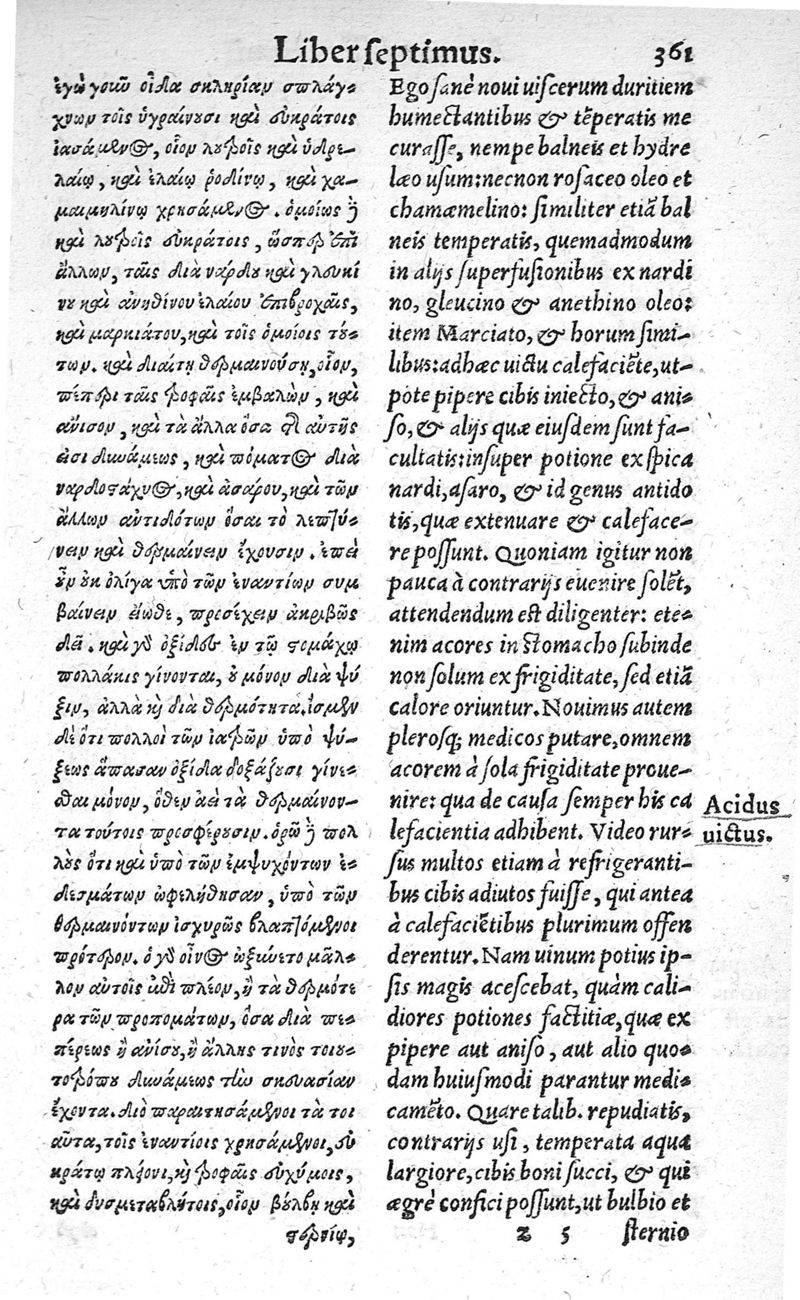 Liber septimus. 361
ἐγὼ γοῦν οἶδα σκληρίαν σπλάγ-
χνων τοῖς ὑγραίνουσι καὶ εὐκράτοις
ἰασάμενος, οἷον λουτροῖς καὶ ὑδρε-
λαίῳ, καὶ ἐλαίῳ ῥοδίνῳ, καὶ χα-
μαιμηλίνῳ χρησάμενος. ὁμοίως δὲ
καὶ λουτροῖς εὐκράτοις, ὥσπερ ἐπὶ
ἄλλων, ταῖς διὰ νάρδου καὶ γλευκί
νου καὶ ἀνηθίνου ἐλαίου ἐπιβροχαῖς,
καὶ μαρκιάτου, καὶ τοῖς ὁμοίοις τού-
των. καὶ διαίτῃ θερμαινούσῃ, οἷον,
πέπερι ταῖς τροφαῖς ἐμβαλὼν, καὶ
ἄνισον, καὶ τὰ ἄλλα ὅσα τῆς αὐτῆς
εἰσι δυνάμεως, καὶ πόματος διὰ
ναρδοστάχυος, καὶ ἀσάρου, καὶ τῶν
ἄλλων ἀντιδότων ὅσαι τὸ λεπτύ-
νειν καὶ θερμαίνειν ἔχουσιν. ἐπεὶ
οὖν οὐκ ὀλίγα ὑπὸ τῶν ἐναντίων συμ
βαίνειν εἴωθε, προσέχειν ἀκριβῶς
δεῖ. καὶ γὰρ ὀξίδες ἐν τῷ στομάχῳ
πολλάκις γίνονται, οὐ μόνον διὰ ψύ
ξιν, ἀλλὰ καὶ διὰ θερμότητα. ἴσμεν
δὲ ὅτι πολλοὶ τῶν ἰατρῶν ὑπὸ ψύ-
ξεως ἅπασαν ὀξίδα δοξάζουσι γίνε-
σθαι μόνον, ὅθεν ἀεὶ τὰ θερμαίνον-
τα τούτοις προσφέρουσιν. ὁρῶ δὲ πολ
λοὺς ὅτι καὶ ὑπὸ τῶν ἐμψυχόντων ἐ-
δεσμάτων ὠφελήθησαν, ὑπὸ τῶν
θερμαινόντων ἰσχυρῶς βλαπτόμενοι
πρότερον. ὁ γὰρ οἶνος ὠξύνετο μᾶλ-
λον αὐτοῖς ἐπὶ πλέον, ἢ τὰ θερμότε
ρα τῶν προπομάτων, ὅσα διὰ πε-
πέρεως ἢ ἀνίσου, ἢ ἄλλης τινὸς τοιου-
τοτρόπου δυνάμεως τὴν σκευασίαν
ἔχοντα. διὸ παραιτησάμενοι τὰ τοι
αῦτα, τοῖς ἐναντίοις χρησάμενοι, εὐ
κράτῳ πλέονι, καὶ τροφαῖς εὐχύμοις,
καὶ δυσμεταβλήτοις, οἷον βούλβῃ καὶ
στερνίῳ,
Ego sanè noui uiscerum duritiem
humectantibus & tẽperatis me
curasse, nempe balneis et hydre
læo usum: necnon rosaceo oleo et
chamæmelino: similiter etiã bal
neis temperatis, quemadmodum
in alijs superfusionibus ex nardi
no, gleucino & anethino oleo:
item Marciato, & horum simi-
libus: adhæc uictu calefaciẽte, ut-
pote pipere cibis iniecto, & ani-
so, & alijs quæ eiusdem sunt fa-
cultatis: insuper potione ex spica
nardi, asaro, & id genus antido
tis, quæ extenuare & caleface-
re possunt. Quoniam igitur non
pauca à contrarijs euenire solẽt,
attendendum est diligenter: ete-
nim acores in stomacho subinde
non solum ex frigiditate, sed etiã
calore oriuntur. Nouimus autem
plerosq; medicos putare, omnem
acorem à sola frigiditate proue-
nire: qua de causa semper his ca
lefacientia adhibent. Video rur-
sus multos etiam à refrigeranti-
bus cibis adiutos fuisse, qui antea
à calefaciẽtibus plurimum offen
derentur. Nam uinum potius ip-
sis magis acescebat, quàm cali-
diores potiones factitiæ, quæ ex
pipere aut aniso, aut alio quo-
dam huiusmodi parantur medi-
camẽto. Quare talib. repudiatis,
contrarijs usi, temperata aqua
largiore, cibis boni succi, & qui
ægrè confici possunt, ut bulbio et
z 5 sternio
Acidus
uictus.